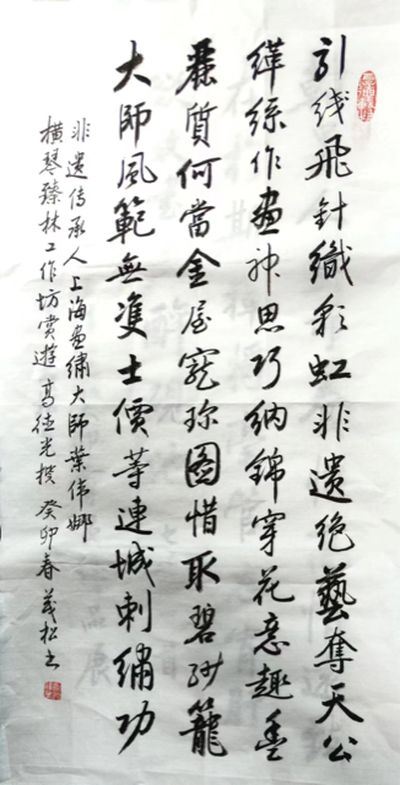 引线飛針織彩虹非遗绝藝奪天公
緙絲作畫神思巧纳錦穿花意趣豊
麗質何當金屋寵珍圖惜取碧紗籠
大師風範無雙士價等連城刺繡功
非遗传承人上海画绣大师葉伟娜
横琴臻林工作坊赏遊 高德光撰 癸卯春 茂松书